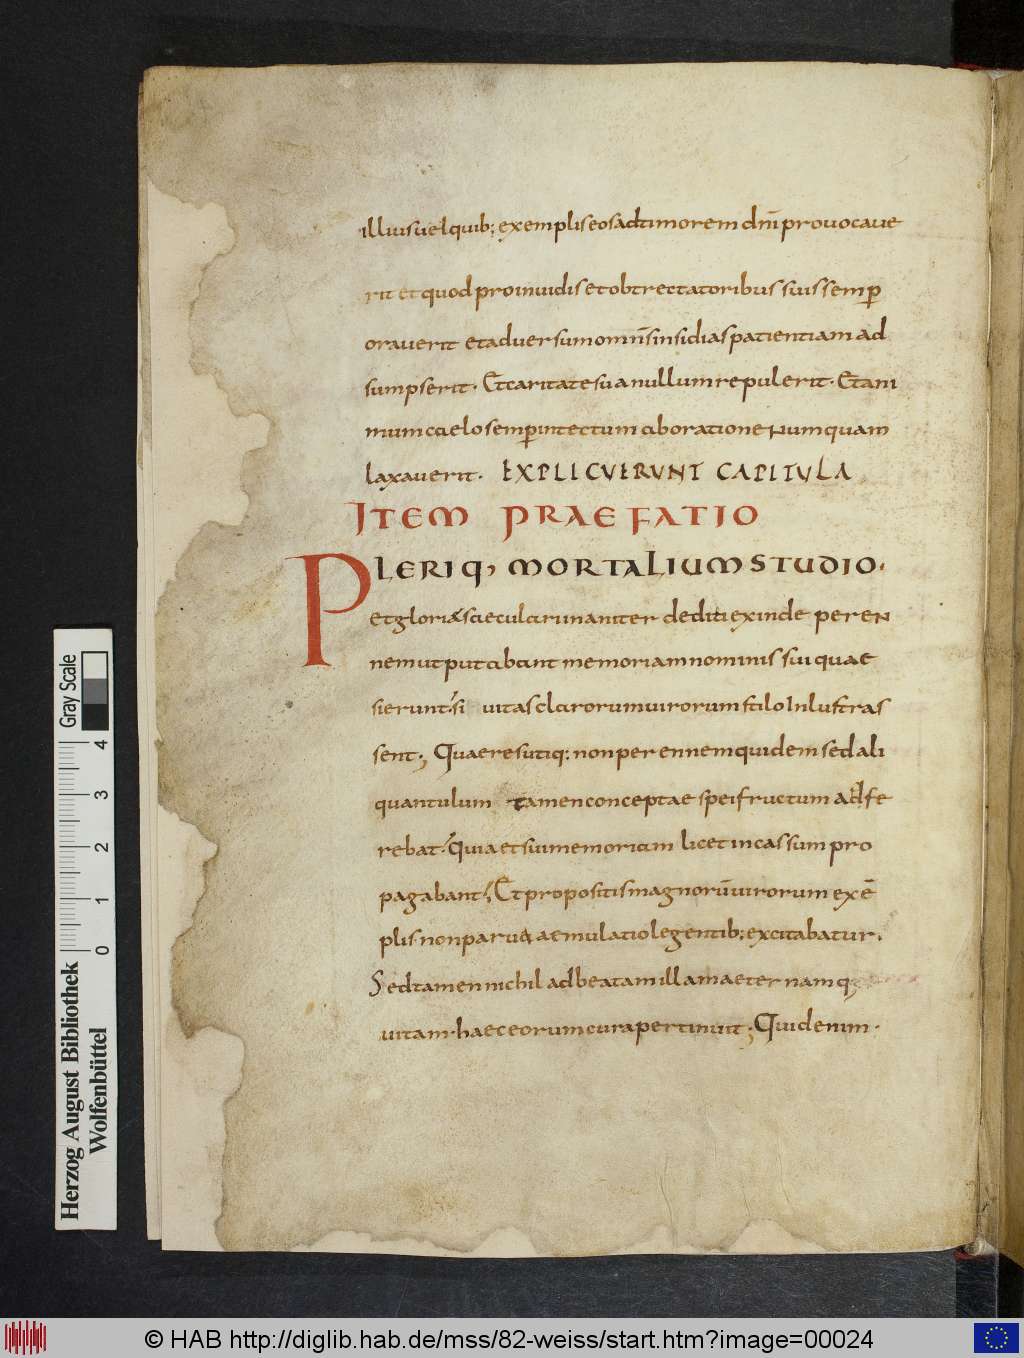 illius uel quib; exemplis eos ad timorem dn̄i prouocaue
rit et quod pro inuidis et obtrectatoribus suis semp̄
orauerit et aduersum omn̄s insidias patientiam ad
sumpserit. Et caritate sua nullum repulerit. Et ani
mum caelo semp̄ intectum ab oratione numquam
laxauerit. EXPLICUERUNT CAPITULA
ITEM PRAEFATIO
PLERIQ, MORTALIUM STUDIO.
et gloriae saeculari inaniter dediti exinde peren
nem ut putabant memoriam nominis sui quae
sierunt. si uitas clarorum uirorum stilo Inlustras
sent; Quae res utiq: non perennem quidem sed ali
quantulum tamen conceptae spei fructum adfe
rebat. Quia et sui memoriam licet incassum pro
pagabant; Et propositis magnorū uirorum exē
plis non parua aemulatio legentib; excitabatur.
Sed tamen nichil ad beatam illam aeternamq;
uitam haec eorum cura pertinuit; Quid enim.
Herzog August Bibliothek
Wolfenbüttel
Gray Scale
0 1 2 3 4
© HAB http://diglib.hab.de/mss/82-weiss/start.htm?image=00024